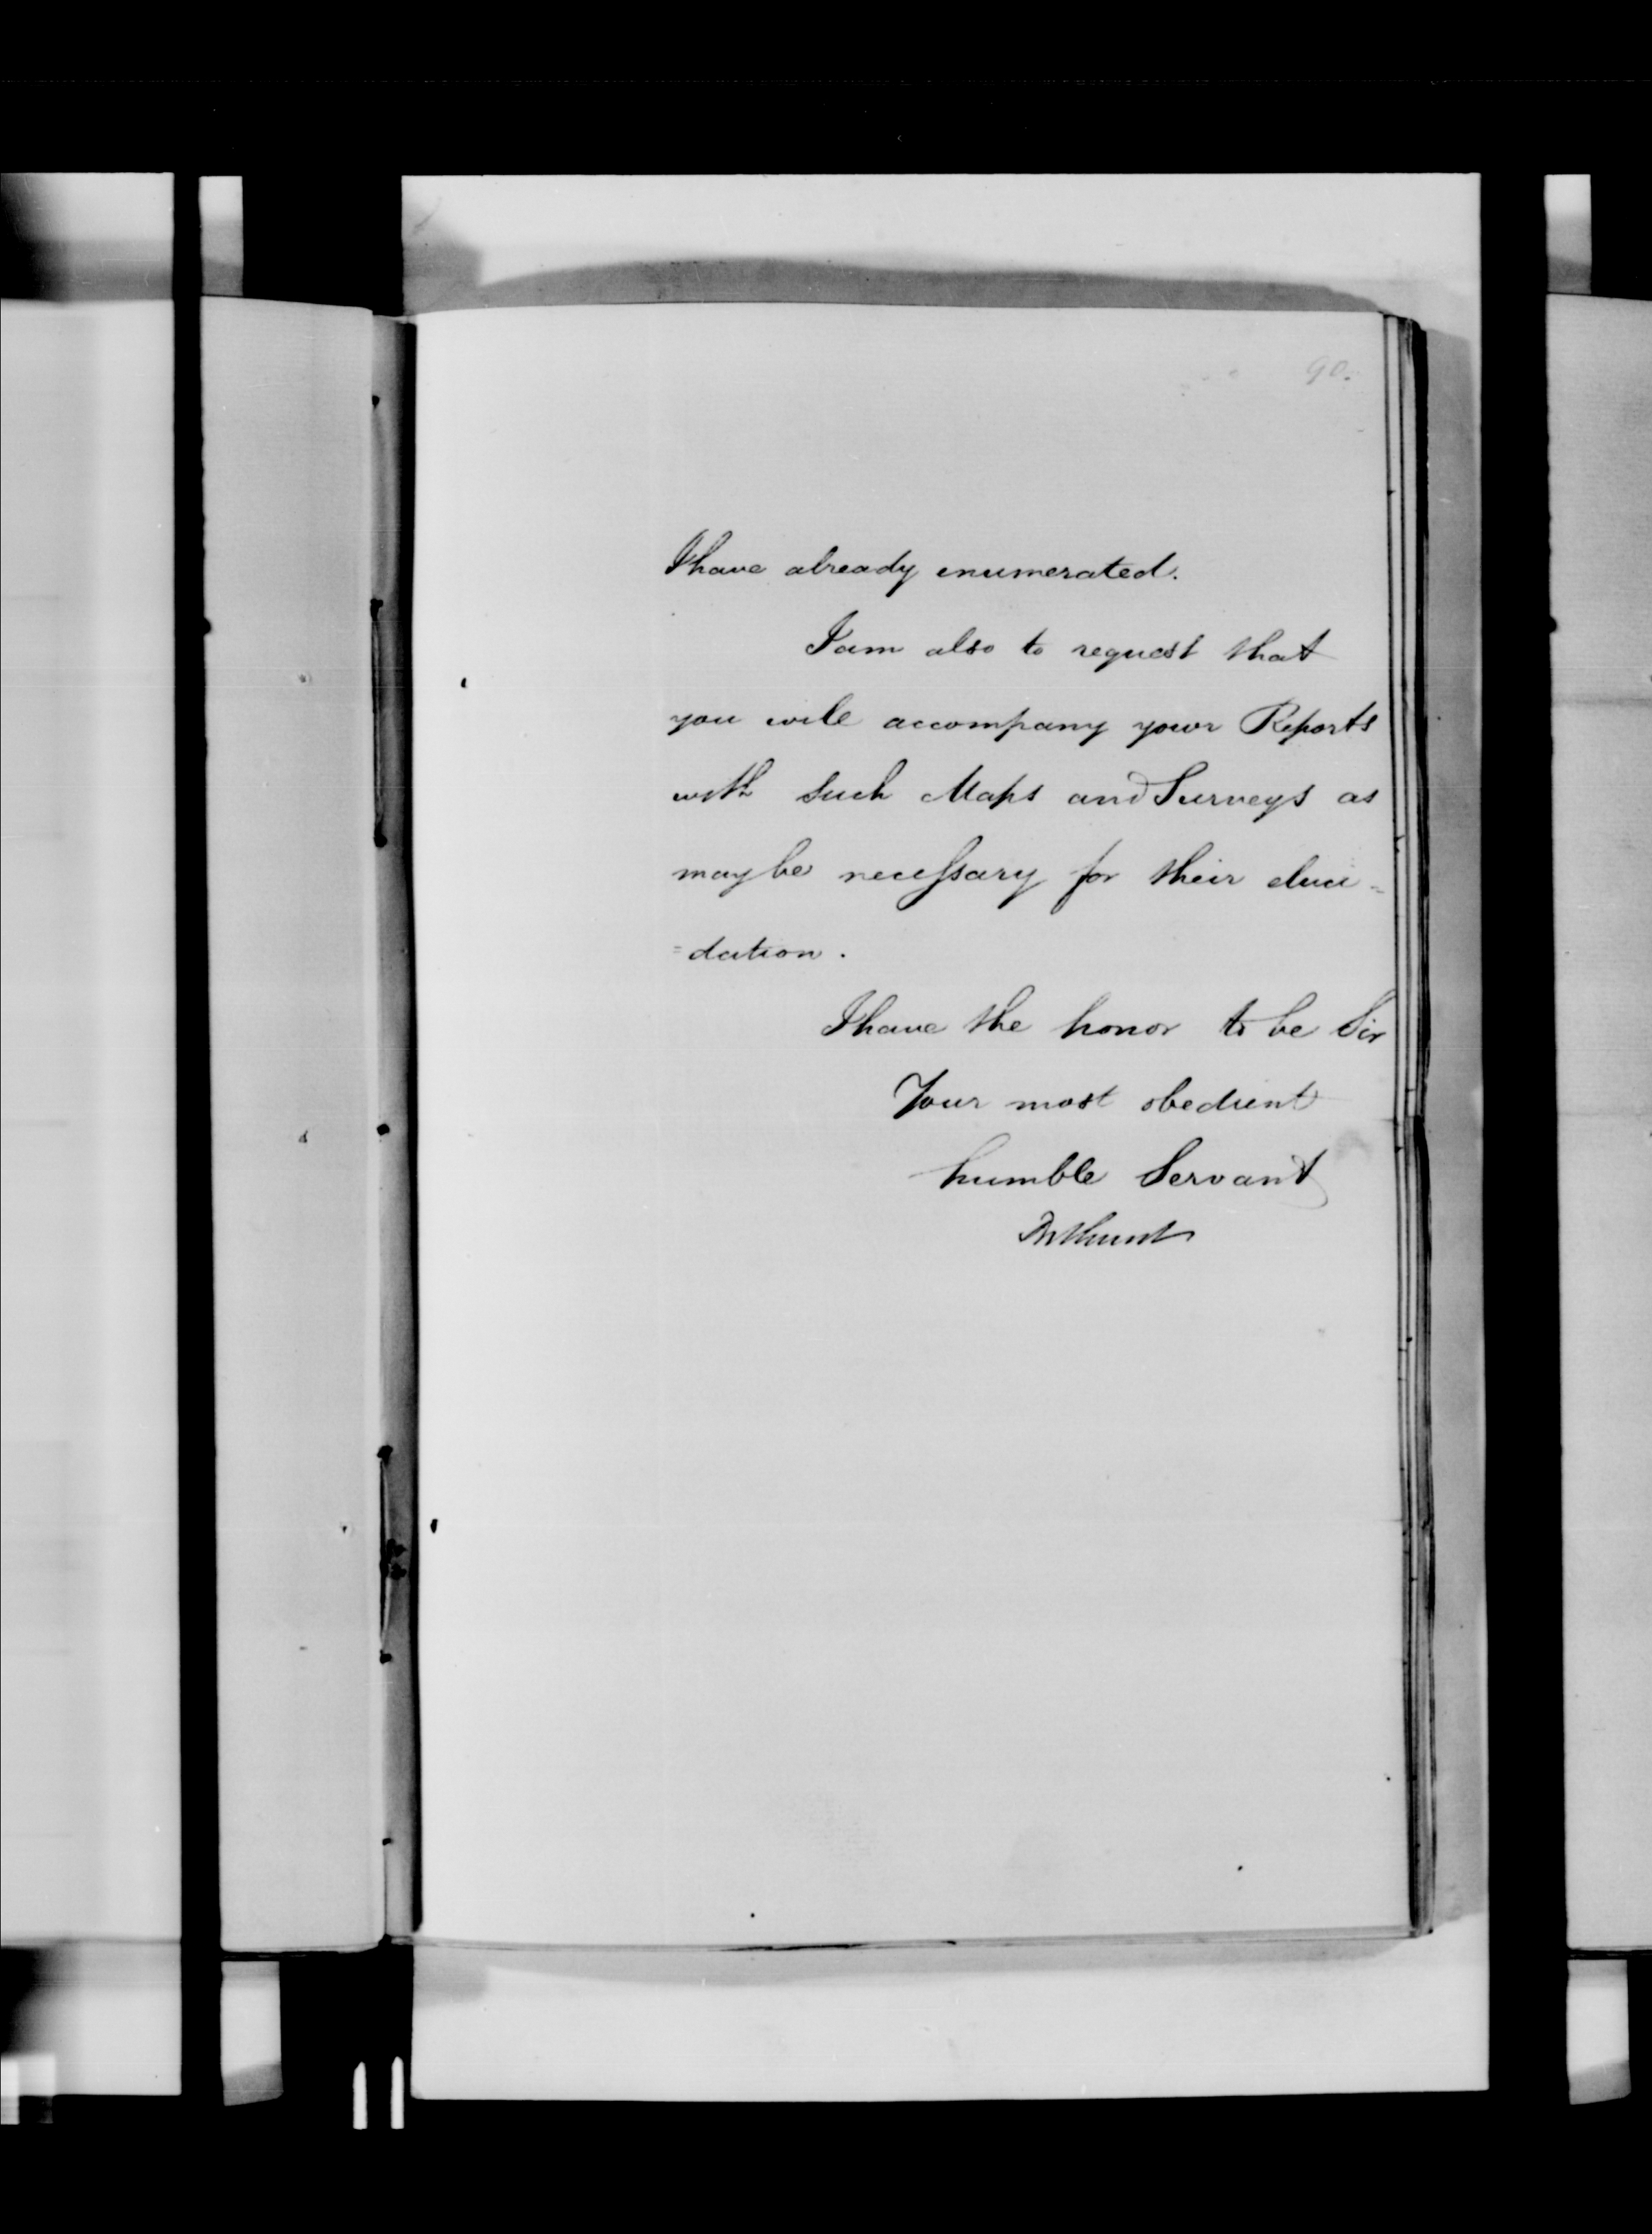 90.
I have already enumerated.
I am also to request that
you will accompany your Reports
with such Maps and Surveys as
may be necessary for their eluci=
=dation.
I have the honor to be Sir
Your most obedient
humble Servant
Bathurst